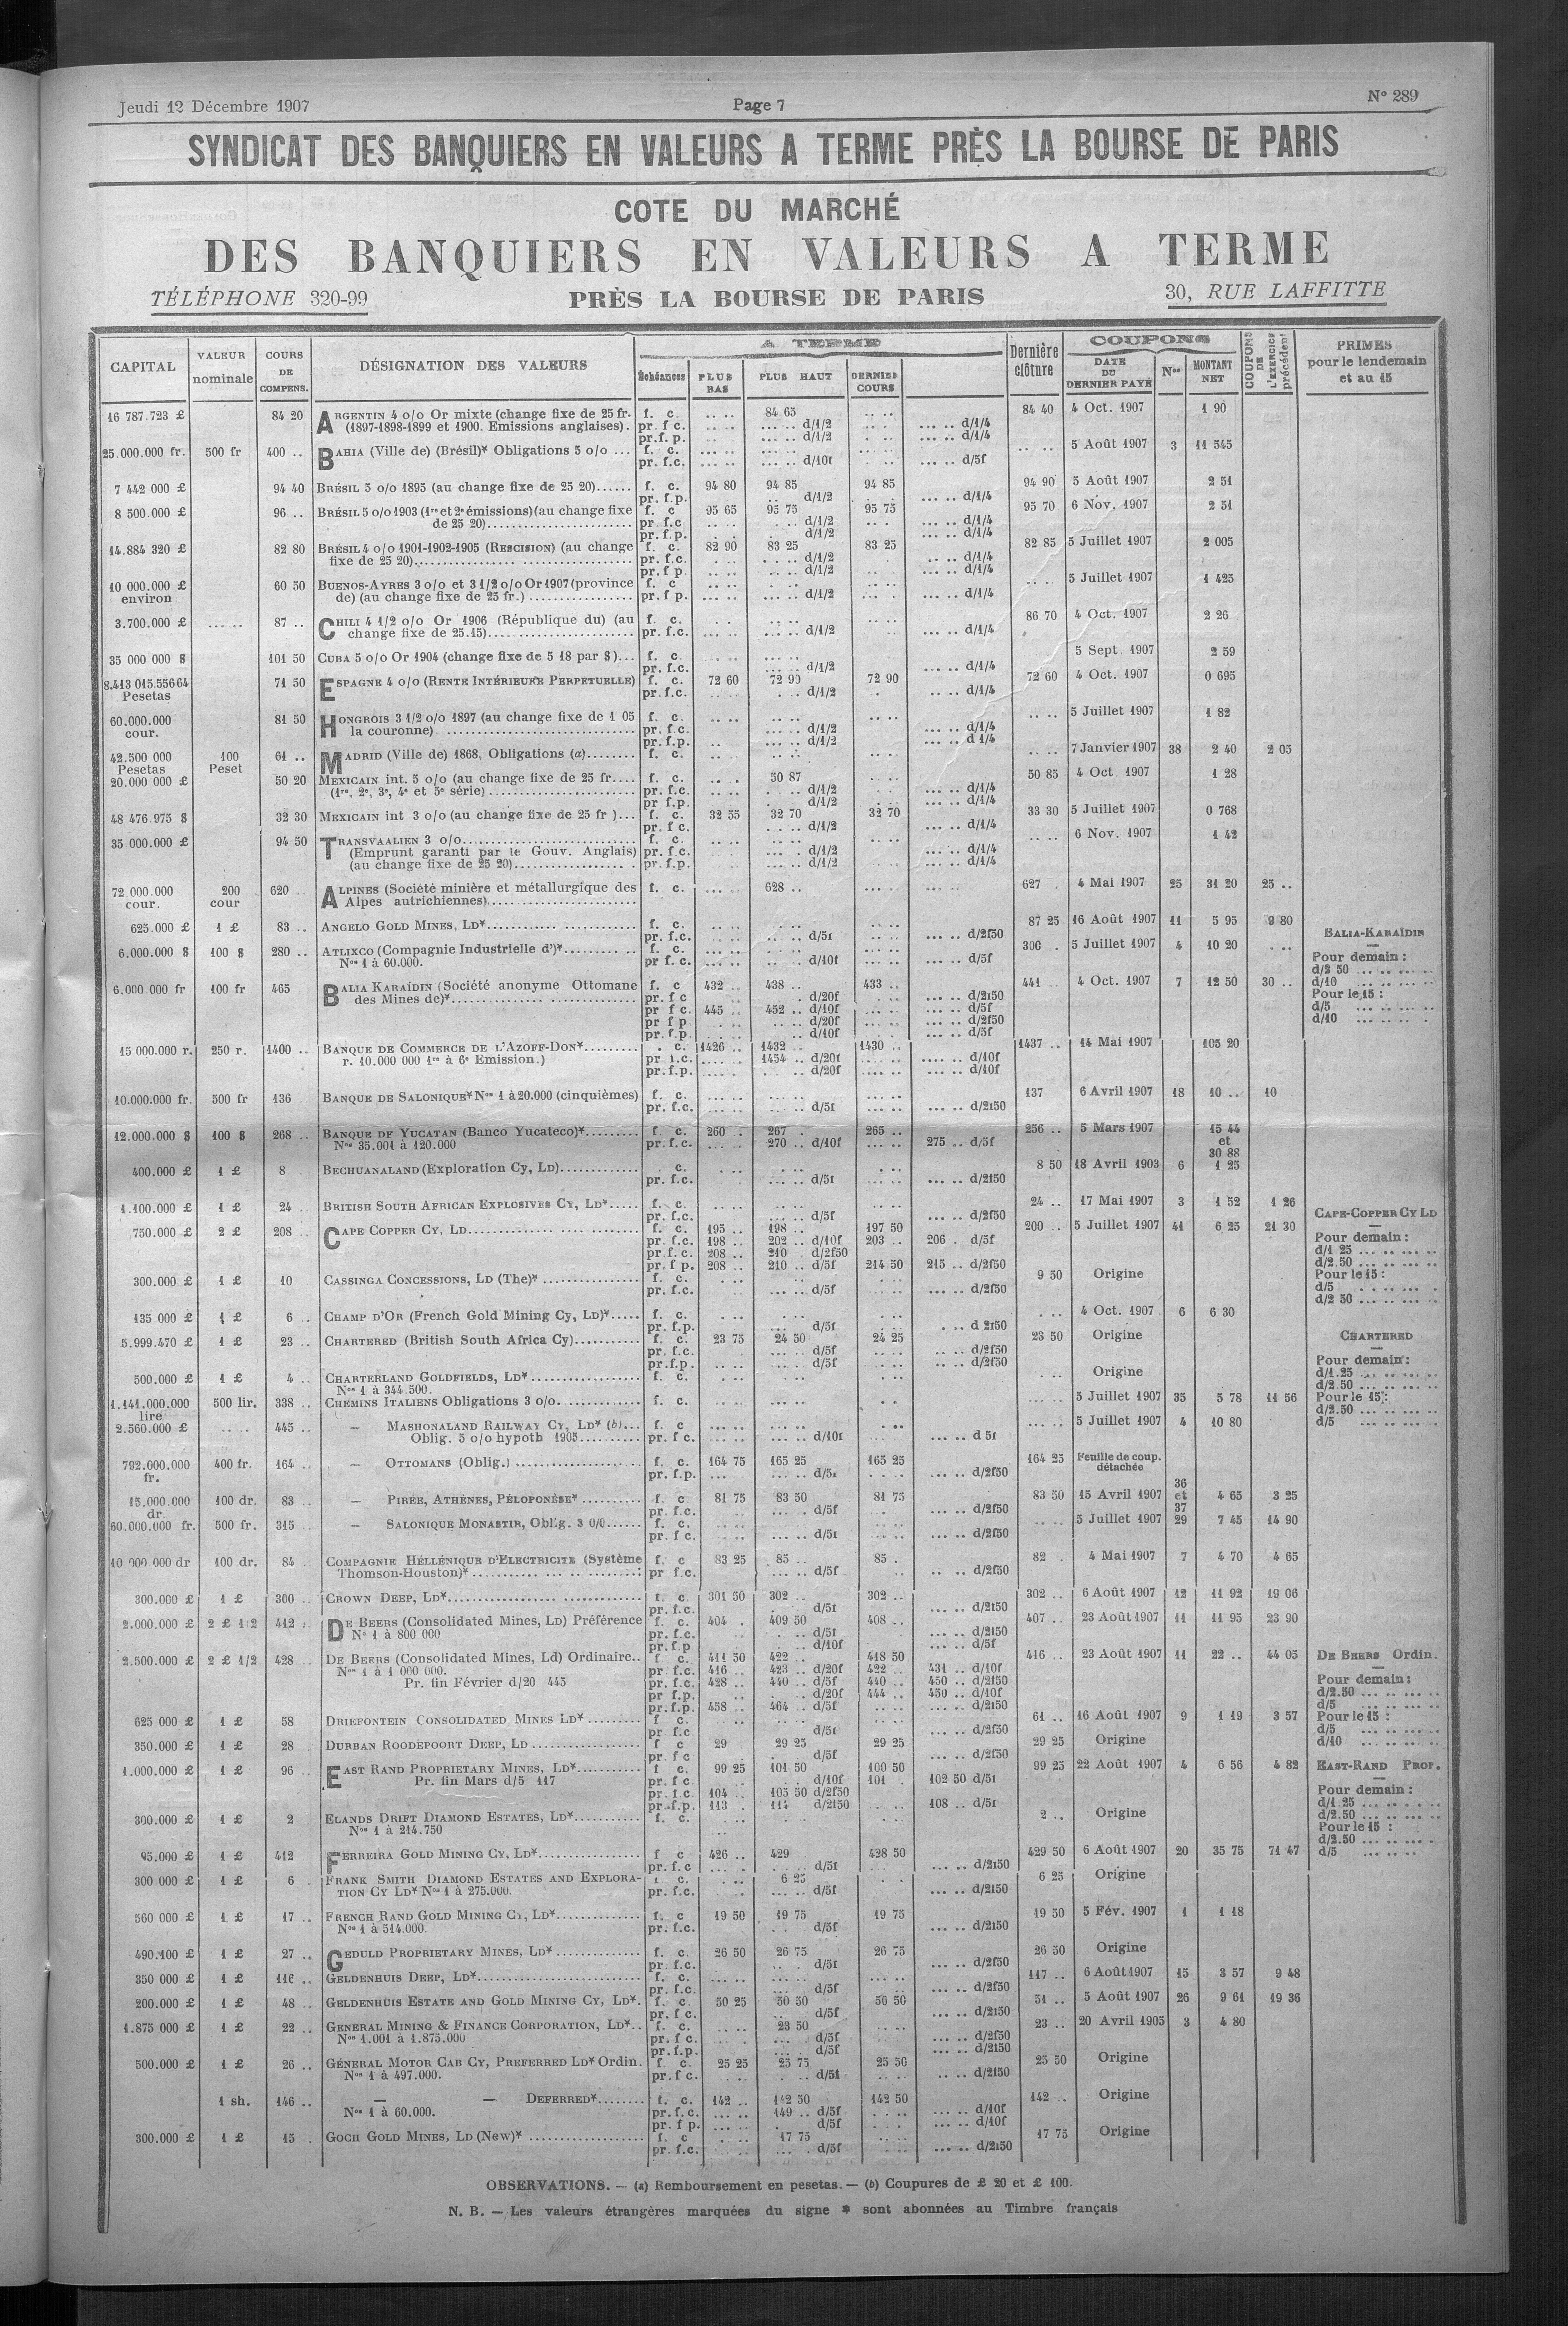 Jeudi 12 Décembre 1907 Page 7 N° 289
SYNDICAT DES BANQUIERS EN VALEURS A TERME PRÈS LA BOURSE DE PARIS
COTE DU MARCHÉ
DES BANQUIERS EN VALEURS A TERME
TÉLÉPHONE 320-99 PRÈS LA BOURSE DE PARIS 30, RUE LAFFITTE
CAPITAL VALEUR nominale COURS DE COMPENS. DÉSIGNATION DES VALEURS A TERME Échéances PLUS BAS PLUS HAUT DERNIER COURS Dernière clôture COUPONS DATE DU DERNIER PAYÉ Nos MONTANT NET COUPONS DE L'EXERCICE précédent PRIMES pour le lendemain et au 15
16 787.723 £ 84 20 ARGENTIN 4 o/o Or mixte (change fixe de 25 fr. f. c. .. .. 84 65 .. .. 84 40 4 Oct. 1907 1 90
(1897-1898-1899 et 1900. Emissions anglaises). pr. f c. .. .. ... .. d/1/2 ... .. d/1/4
pr.f. p. ... .. d/1/2 ... .. d/1/4
25.000.000 fr. 500 fr 400 .. BAHIA (Ville de) (Brésil)* Obligations 5 o/o ... f. c. .. .. 5 Août 1907 3 11 545
pr. f.c. ... .. ... .. d/10f ... .. d/5f
7 442 000 £ 94 40 BRÉSIL 5 o/o 1895 (au change fixe de 25 20)...... f. c. 94 80 94 85 94 85 94 90 5 Août 1907 2 51
pr. f.p. d/1/2 ... .. d/1/4
8 500.000 £ 96 .. BRÉSIL 5 o/o 1903 (1re et 2e émissions)(au change fixe f. c 95 65 95 75 95 75 95 70 6 Nov. 1907 2 51
de 25 20)........................ pr f.c d/1/2 ... .. d/1/4
pr. f.p. d/1/2 ... .. d/1/4
14.884 320 £ 82 80 BRÉSIL 4 o/o 1901-1902-1905 (RESCISION) (au change f. c. 82 90 83 25 83 25 82 85 5 Juillet 1907 2 005
fixe de 25 20)................................. pr. f.c. d/1/2 ... .. d/1/4
pr. f p. d/1/2 ... .. d/1/4
10 000.000 £ 60 50 BUENOS-AYRES 3 o/o et 3 1/2 o/o Or 1907 (province f. c 5 Juillet 1907 1 425
environ de) (au change fixe de 25 fr.) ................. pr. f p. ... .. d/1/2 ... .. d/1/4
3.700.000 £ ... .. 87 .. CHILI 4 1/2 o/o Or 1906 (République du) (au f. c. 86 70 4 Oct. 1907 2 26
change fixe de 25.15)........................ pr. f.c. ... .. ... .. d/1/2 ... .. d/1/4
35 000 000 $ 101 50 CUBA 5 o/o Or 1904 (change fixe de 5 18 par $)... f. c. 5 Sept. 1907 2 59
pr. f.c. ... .. d/1/2 ... .. d/1/4
8.413 015.55664 71 50 ESPAGNE 4 o/o (RENTE INTÉRIEURE PERPETUELLE) f. c. 72 60 72 90 72 90 72 60 4 Oct. 1907 0 695
Pesetas pr. f.c. d/1/2 .. .. d/1/4
60.000.000 81 50 HONGROIS 3 1/2 o/o 1897 (au change fixe de 1 05 f. c. .. .. 5 Juillet 1907 1 82
cour. la couronne) ............................... pr. f.c. ... .. d/1/2 ... .. d/1/4
pr. f.p. ... .. d/1/2 ... .. d 1/4
42.500 000 100 61 .. MADRID (Ville de) 1868, Obligations (a)........ f. c. .. .. 7 Janvier 1907 38 2 40 2 05
Pesetas Peset
20.000 000 £ 50 20 MEXICAIN int. 5 o/o (au change fixe de 25 fr.... f. c. 50 87 50 85 4 Oct 1907 1 28
(1re, 2e, 3e, 4e et 5e série) ........................ pr. f.c. d/1/2 ... .. d/1/4
pr f.p. d/1/2 ... .. d/1/4
48 476.975 $ 32 30 MEXICAIN int 3 o/o (au change fixe de 25 fr )... f. c. 32 55 32 70 32 70 33 30 5 Juillet 1907 0 768
pr. f c. d/1/2 ... .. d/1/4
35 000.000 £ 94 50 TRANSVAALIEN 3 o/o............................ f. c. 6 Nov. 1907 1 42
(Emprunt garanti par le Gouv. Anglais) pr. f.c. d/1/2 ... .. d/1/4
(au change fixe de 25 20)................... pr. f.p. ... .. d/1/2 ... .. d/1/4
72 000.000 200 620 ALPINES (Société minière et métallurgique des f. c. 628 .. 627 4 Mai 1907 25 31 20 25 ..
cour. cour Alpes autrichiennes)........................
625.000 £ 1 £ 83 .. ANGELO GOLD MINES, LD*......................... f. c. 87 25 16 Août 1907 11 5 95 9 80
pr. f.c. d/5f ... .. d/2f50 BALIA-KARAÏDIN
6.000.000 $ 100 $ 280 .. ATLIXCO (Compagnie Industrielle d')*............ f. c. 300 .. 5 Juillet 1907 4 10 20
Nos 1 à 60.000. pr f. c. ... .. d/10f ... .. d/5f Pour demain :
d/2 50 ... .. ... ..
6.000 000 fr 100 fr 465 BALIA KARAÏDIN (Société anonyme Ottomane f. c 432 .. 438 .. 433 .. 441 4 Oct. 1907 7 12 50 30 .. d/10 ... .. ... ..
des Mines de)*............................. pr. f c d/20f ... .. d/2f50 Pour le 15 :
pr f c. 445 .. 452 .. d/10f ... .. d/5f d/5 ... .. ... ..
pr f p. d/20f ... .. d/2f50 d/10 ... .. ... ..
pr. f.p. d/10f ... .. d/5f
15 000.000 r. 250 r. 1400 .. BANQUE DE COMMERCE DE L'AZOFF-DON*......... c. 1426 .. 1432 .. 1430 .. 1437 .. 14 Mai 1907 105 20
r. 10.000 000 1re à 6e Emission.) pr f.c. 1454 .. d/20f .... .. d/10f
pr. f.p. d/20f .... .. d/10f
10.000.000 fr. 500 fr 136 BANQUE DE SALONIQUE* Nos 1 à 20.000 (cinquièmes) f. c. 137 6 Avril 1907 18 10 .. 10
pr. f.c. ... .. d/5f ... .. d/2f50
12.000.000 $ 100 $ 268 .. BANQUE DE YUCATAN (Banco Yucateco)*......... f. c 260 . 267 . 265 .. 256 .. 5 Mars 1907 15 44
Nos 35.001 à 120.000 pr. f.c. 270 .. d/10f 275 .. d/5f et
30 88
400.000 £ 1 £ 8 BECHUANALAND (Exploration Cy, LD)............. c. 8 50 18 Avril 1903 6 1 25
pr. f.c. ... .. d/5f ... .. d/2f50
1.100.000 £ 1 £ 24 .. BRITISH SOUTH AFRICAN EXPLOSIVES CY, LD*..... f. c. 24 .. 17 Mai 1907 3 1 52 1 26
pr. f.c. ... .. d/5f ... .. d/2f50 CAPE-COPPER CY LD
750.000 £ 2 £ 208 .. CAPE COPPER CY, LD......................... f. c. 195 .. 198 .. 197 50 200 .. 5 Juillet 1907 41 6 25 21 30
pr. f.c. 198 .. 202 .. d/10f 203 .. 206 . d/5f Pour demain :
pr. f. c. 208 .. 210 . d/2f50 d/1 25 ... .. ... ..
pr. f p. 208 .. 210 .. d/5f 214 50 215 .. d/2f50 d/2.50 ... .. ... ..
300.000 £ 1 £ 10 CASSINGA CONCESSIONS, LD (The)* ................ f. c. 9 50 Origine Pour le 15 :
pr. f.c. ... .. d/5f ... .. d/2f50 d/5
d/2 50 ... .. ... ..
135 000 £ 1 £ 6 .. CHAMP D'OR (French Gold Mining Cy, LD)*..... f. c. 4 Oct. 1907 6 6 30
pr. f.p. d/5f d 2f50
5.999.470 £ 1 £ 23 .. CHARTERED (British South Africa Cy)........... f. c. 23 75 24 50 24 25 23 50 Origine CHARTERED
pr. f.c. ... .. d/5f .. .. d/2f50
pr. f.p. ... .. d/5f .. .. d/2f50 Pour demain :
500.000 £ 1 £ 4 .. CHARTERLAND GOLDFIELDS, LD*.................. f. c. Origine d/1.25 ... .. ... ..
Nos 1 à 344.500. d/2.50 ... .. ... ..
1.141.000.000 500 lir. 338 .. CHEMINS ITALIENS Obligations 3 o/o............. f. c. 5 Juillet 1907 35 5 78 11 56 Pour le 15 :
lire d/2.50 ... .. ... ..
2.560.000 £ .. .. 445 .. — MASHONALAND RAILWAY CY, LD* (b)... f. c 5 Juillet 1907 4 10 80 d/5 ... .. ... ..
Oblig. 5 o/o hypoth 1905.......... pr. f c. ... .. d/10f ... .. d 5f
792.000.000 400 fr. 164 .. — OTTOMANS (Oblig.) ..................... f. c. 164 75 165 25 165 25 164 25 Feuille de coup.
fr. pr. f.p. ... .. d/5f ... .. d/2f50 détachée
36
15.000.000 100 dr. 83 .. — PIRÉE, ATHÈNES, PÉLOPONÈSE* .......... f. c 81 75 83 50 81 75 83 50 15 Avril 1907 et 4 65 3 25
dr pr. f.c. ... .. d/5f ... .. d/2f50 37
60.000.000 fr. 500 fr. 315 .. — SALONIQUE MONASTIR, Oblig. 3 0/0...... f. c. 5 Juillet 1907 29 7 45 14 90
pr. f c. ... .. d/5f ... .. d/2f50
10 000 000 dr 100 dr. 84 COMPAGNIE HELLÉNIQUE D'ELECTRICITE (Système f. c 83 25 85 .. 85 . 82 . 4 Mai 1907 7 4 70 4 65
Thomson-Houston)* ........................ pr f.c. ... .. d/5f .. .. d/2f50
300.000 £ 1 £ 300 .. CROWN DEEP, LD*............................. f. c. 301 50 302 302 .. 302 .. 6 Août 1907 12 11 92 19 06
pr. f.c. d/5f ... .. d/2f50
2.000.000 £ 2 £ 1/2 412 . DE BEERS (Consolidated Mines, LD) Préférence f. c. 404 . 409 50 408 .. 407 .. 23 Août 1907 11 11 95 23 90
Nos 1 à 800 000 pr. f.c. d/5f ... .. d/2f50
pr. f.p d/10f ... .. d/5f
2.500.000 £ 2 £ 1/2 428 .. DE BEERS (Consolidated Mines, Ld) Ordinaire.. f c. 411 50 422 .. 418 50 416 .. 23 Août 1907 11 22 .. 44 05 DE BEERS Ordin.
Nos 1 à 1 000 000. pr f.c. 416 .. 423 .. d/20f 422 .. 431 .. d/10f
Pr. fin Février d/20 445 pr. f.c. 428 .. 440 .. d/5f 440 .. 450 .. d/2f50 Pour demain :
pr f.p. d/20f 444 .. 450 .. d/10f d/2.50 ... .. ... ..
pr. f.p. 458 .. 464 .. d/5f ... .. d/2f50 d/5 ... .. ... ..
625 000 £ 1 £ 58 DRIEFONTEIN CONSOLIDATED MINES LD*......... f c. 61 .. 16 Août 1907 9 1 19 3 57 Pour le 15 :
pr. f.c d/5f ... .. d/2f50 d/5 ... .. ... ..
350.000 £ 1 £ 28 DURBAN ROODEPOORT DEEP, LD .................. f c 29 29 25 29 25 29 25 Origine d/10 ... .. ... ..
pr. f c d/5f ... .. d/2f50
1.000.000 £ 1 £ 96 .. EAST RAND PROPRIETARY MINES, LD*........... f c. 99 25 101 50 100 50 99 25 22 Août 1907 4 6 56 4 82 EAST-RAND PROP.
Pr. fin Mars d/5 117 pr. f c d/10f 101 . 102 50 d/5f
pr. f c. 104 .. 105 50 d/2f50 Pour demain :
pr. f.p. 113 . 114 d/2f50 108 .. d/5f d/1.25 ... .. ... ..
300.000 £ 1 £ 2 ELANDS DRIFT DIAMOND ESTATES, LD*........... f. c. 2 .. Origine d/2.50 ... .. ... ..
Nos 1 à 214.750 Pour le 15 :
d/2.50 ... .. ... .
95.000 £ 1 £ 412 FERREIRA GOLD MINING CY, LD*................. f c 426 .. 429 428 50 429 50 6 Août 1907 20 35 75 71 47 d/5 ... .. ..
pr. f.c d/5f ... .. d/2f50
300 000 £ 1 £ 6 . FRANK SMITH DIAMOND ESTATES AND EXPLORA- f c. 6 25 6 25 Origine
TION CY LD* Nos 1 à 275.000. pr. f.c. ... .. d/5f ... .. d/2f50
560 000 £ 1 £ 17 .. FRENCH RAND GOLD MINING CY, LD*.............. f. c 19 50 19 75 19 75 19 50 5 Fév. 1907 1 1 18
Nos 1 à 514.000. pr. f.c. d/5f ... .. d/2f50
490.100 £ 1 £ 27 .. GEDULD PROPRIETARY MINES, LD*.............. f. c. 26 50 26 75 26 75 26 50 Origine
pr. f.c. d/5f ... .. d/2f50
350 000 £ 1 £ 116 .. GELDENHUIS DEEP, LD*........................... f. c. 117 .. 6 Août 1907 15 3 57 9 48
pr. f.c. ... .. d/5f ... .. d/2f50
200.000 £ 1 £ 48 .. GELDENHUIS ESTATE AND GOLD MINING CY, LD*. f. c. 50 25 50 50 50 50 51 .. 5 Août 1907 26 9 61 19 36
pr. f c. .. .. d/5f ... .. d/2f50
1.875 000 £ 1 £ 22 .. GENERAL MINING & FINANCE CORPORATION, LD*.. f. c. 23 50 23 .. 20 Avril 1905 3 4 80
Nos 1.001 à 1.875.000 pr. f c. ... . d/5f ... .. d/2f50
pr. f.p. ... . d/5f ... .. d/2f50
500.000 £ 1 £ 26 .. GÉNERAL MOTOR CAB CY, PREFERRED LD* Ordin. f. c. 25 25 25 75 25 50 25 50 Origine
Nos 1 à 497.000. pr. f c. d/5f .. .. d/2f50
1 sh. 146 .. — — DEFERRED*........ f. c. 142 .. 142 50 142 50 142 .. Origine
Nos 1 à 60.000. pr. f. c. ... .. 149 .. d/5f ... .. d/10f
pr. f p. d/5f ... .. d/10f
300.000 £ 1 £ 15 . GOCH GOLD MINES, LD (New)* ................... f. c 17 75 17 75 Origine
pr. f.c. ... . d/5f ... .. d/2f50
OBSERVATIONS. — (a) Remboursement en pesetas. — (b) Coupures de £ 20 et £ 100.
N. B. — Les valeurs étrangères marquées du signe * sont abonnées au Timbre français